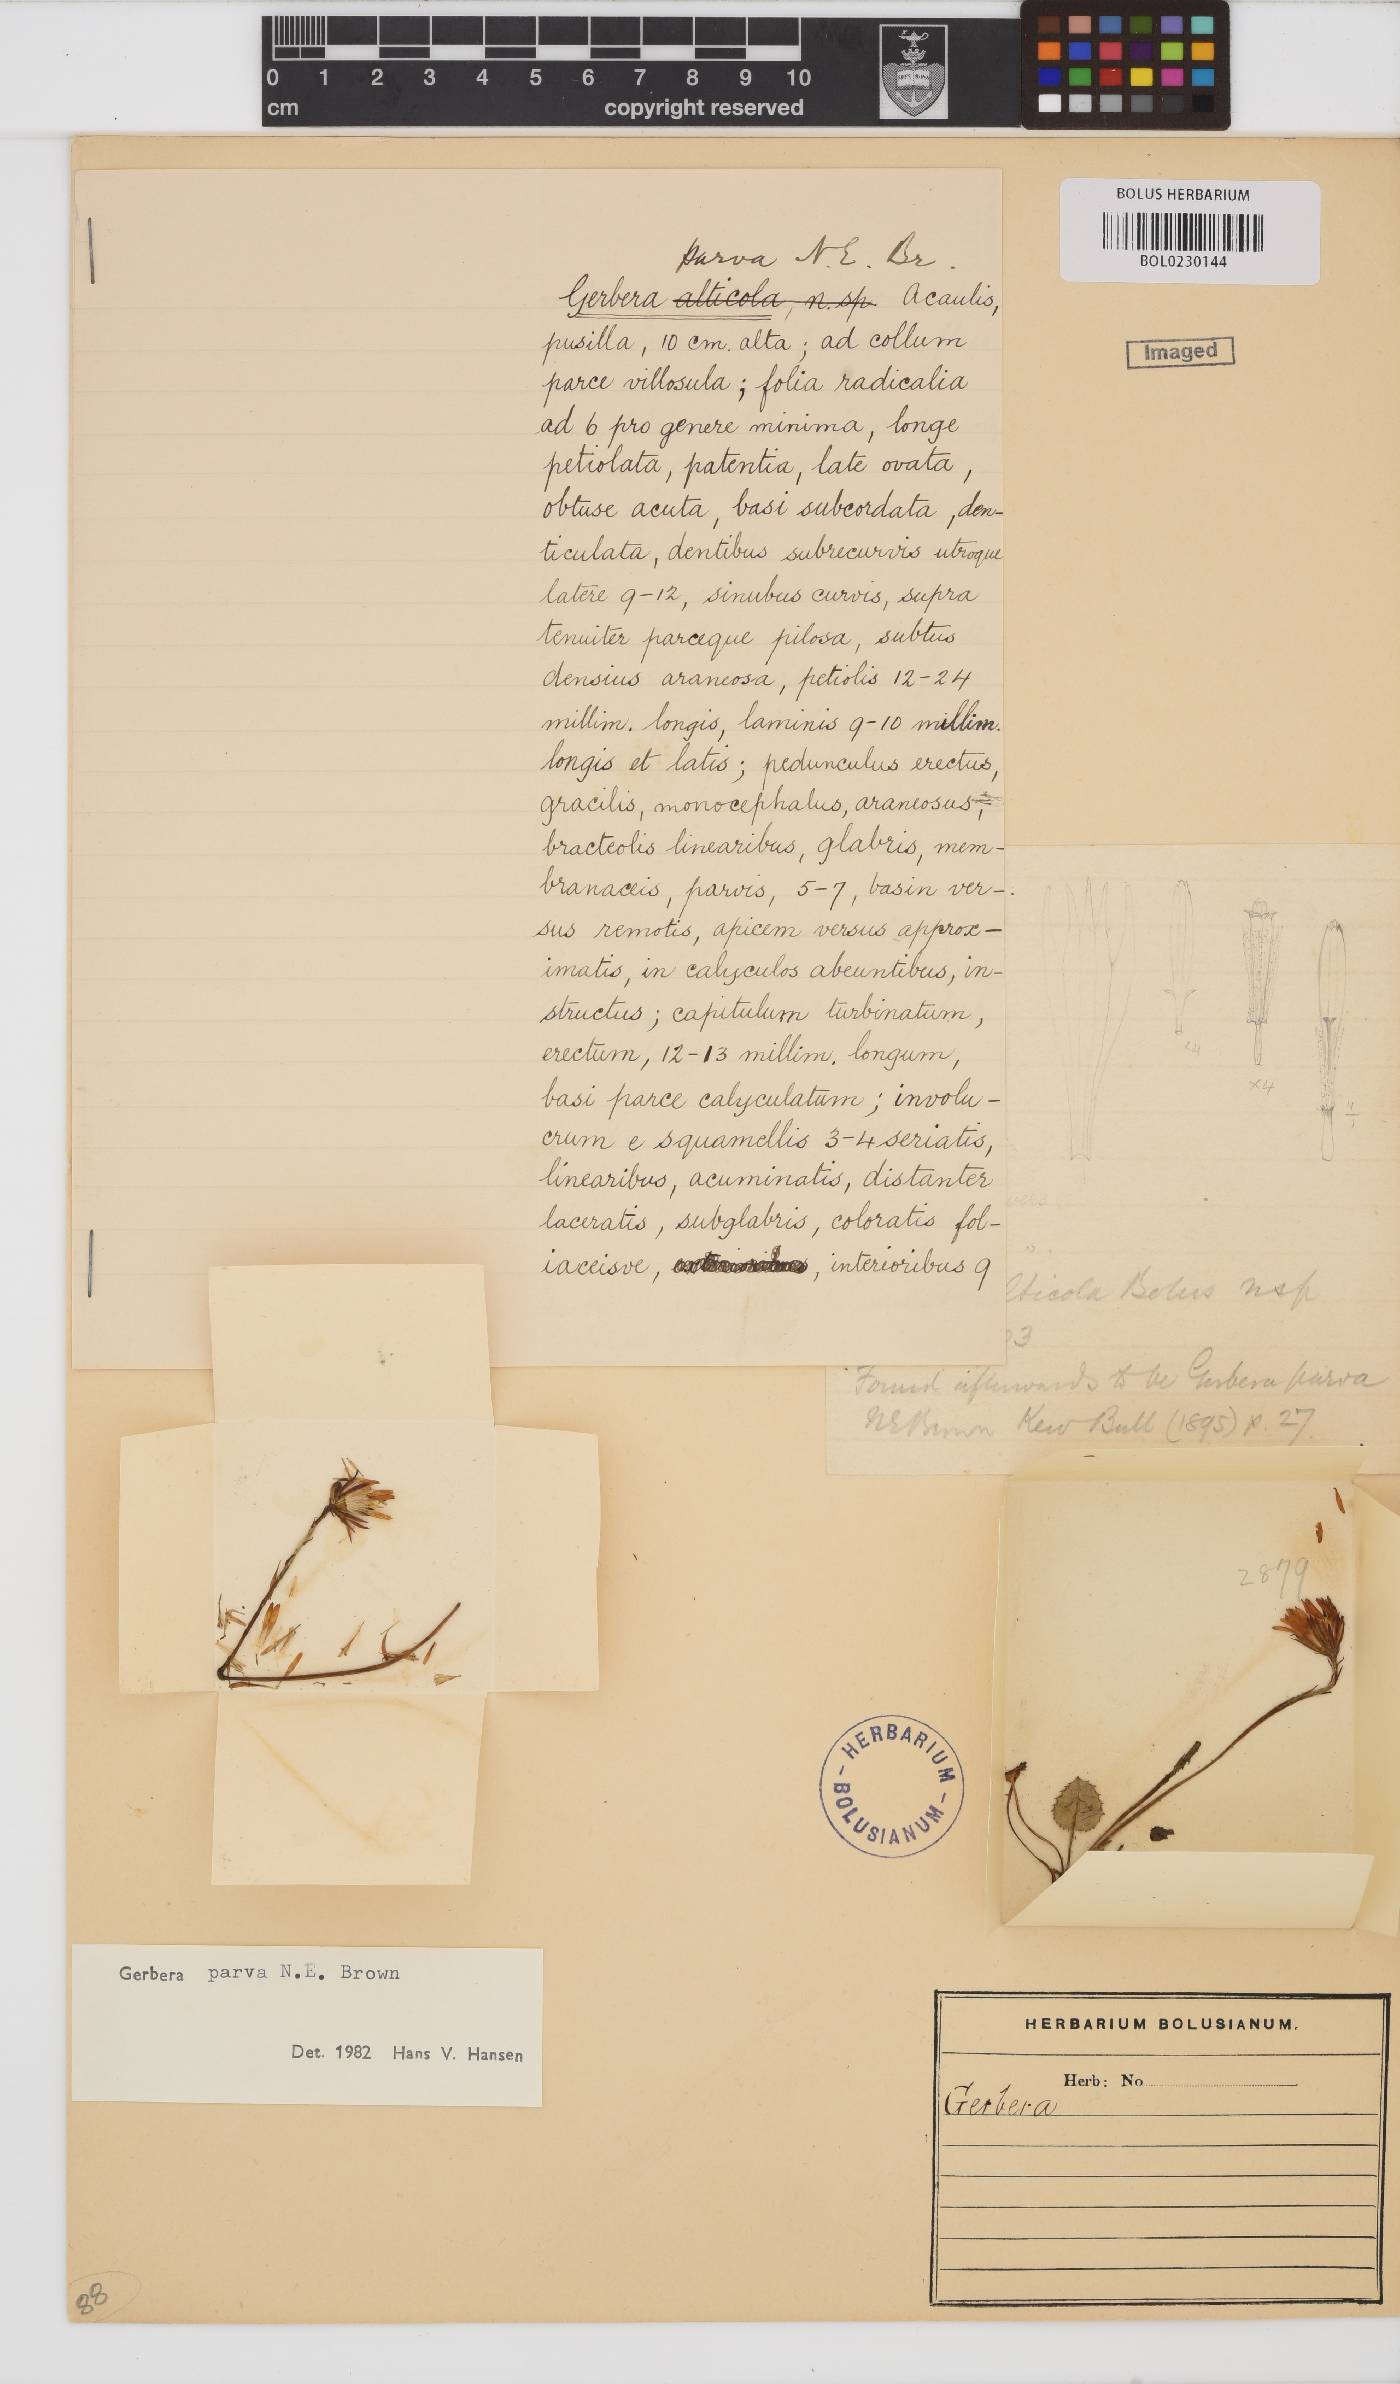 0 1 2 3 4 5 6 7 8 9 10
cm
copyright reserved
BOLUS HERBARIUM
BOL0230144
Imaged
parva N.E. Br.
Gerbera alticola, n. sp. Acaulis,
pusilla, 10 cm. alta; ad collum
parce villosula; folia radicalia
ad 6 pro genere minima, longe
petiolata, patentia, late ovata,
obtuse acuta, basi subcordata, den-
ticulata, dentibus subrecurvis utroque
latere 9-12, sinubus curvis, supra
tenuiter parceque pilosa, subtus
densius araneosa, petiolis 12-24
millim. longis, laminis 9-10 millim.
longis et latis; pedunculus erectus,
gracilis, monocephalus, araneosus,
bracteolis linearibus, glabris, mem-
branaceis, parvis, 5-7, basin ver-
sus remotis, apicem versus approx-
imatis, in calyculos abeuntibus, in-
structus; capitulum turbinatum,
erectum, 12-13 millim. longum,
basi parce calyculatum; involu-
crum e squamellis 3-4 seriatis,
linearibus, acuminatis, distanter
laceratis, subglabris, coloratis fol-
iaceisve, , interioribus 9
×4
×4
4/1
lticola Bolus nsp
03
Found afterwards to be Gerbera parva
NEBrown Kew Bull (1895) p. 27.
2879
HERBARIUM
BOLUSIANUM
Gerbera parva N.E. Brown
Det. 1982 Hans V. Hansen
HERBARIUM BOLUSIANUM.
Herb: No
Gerbera
88